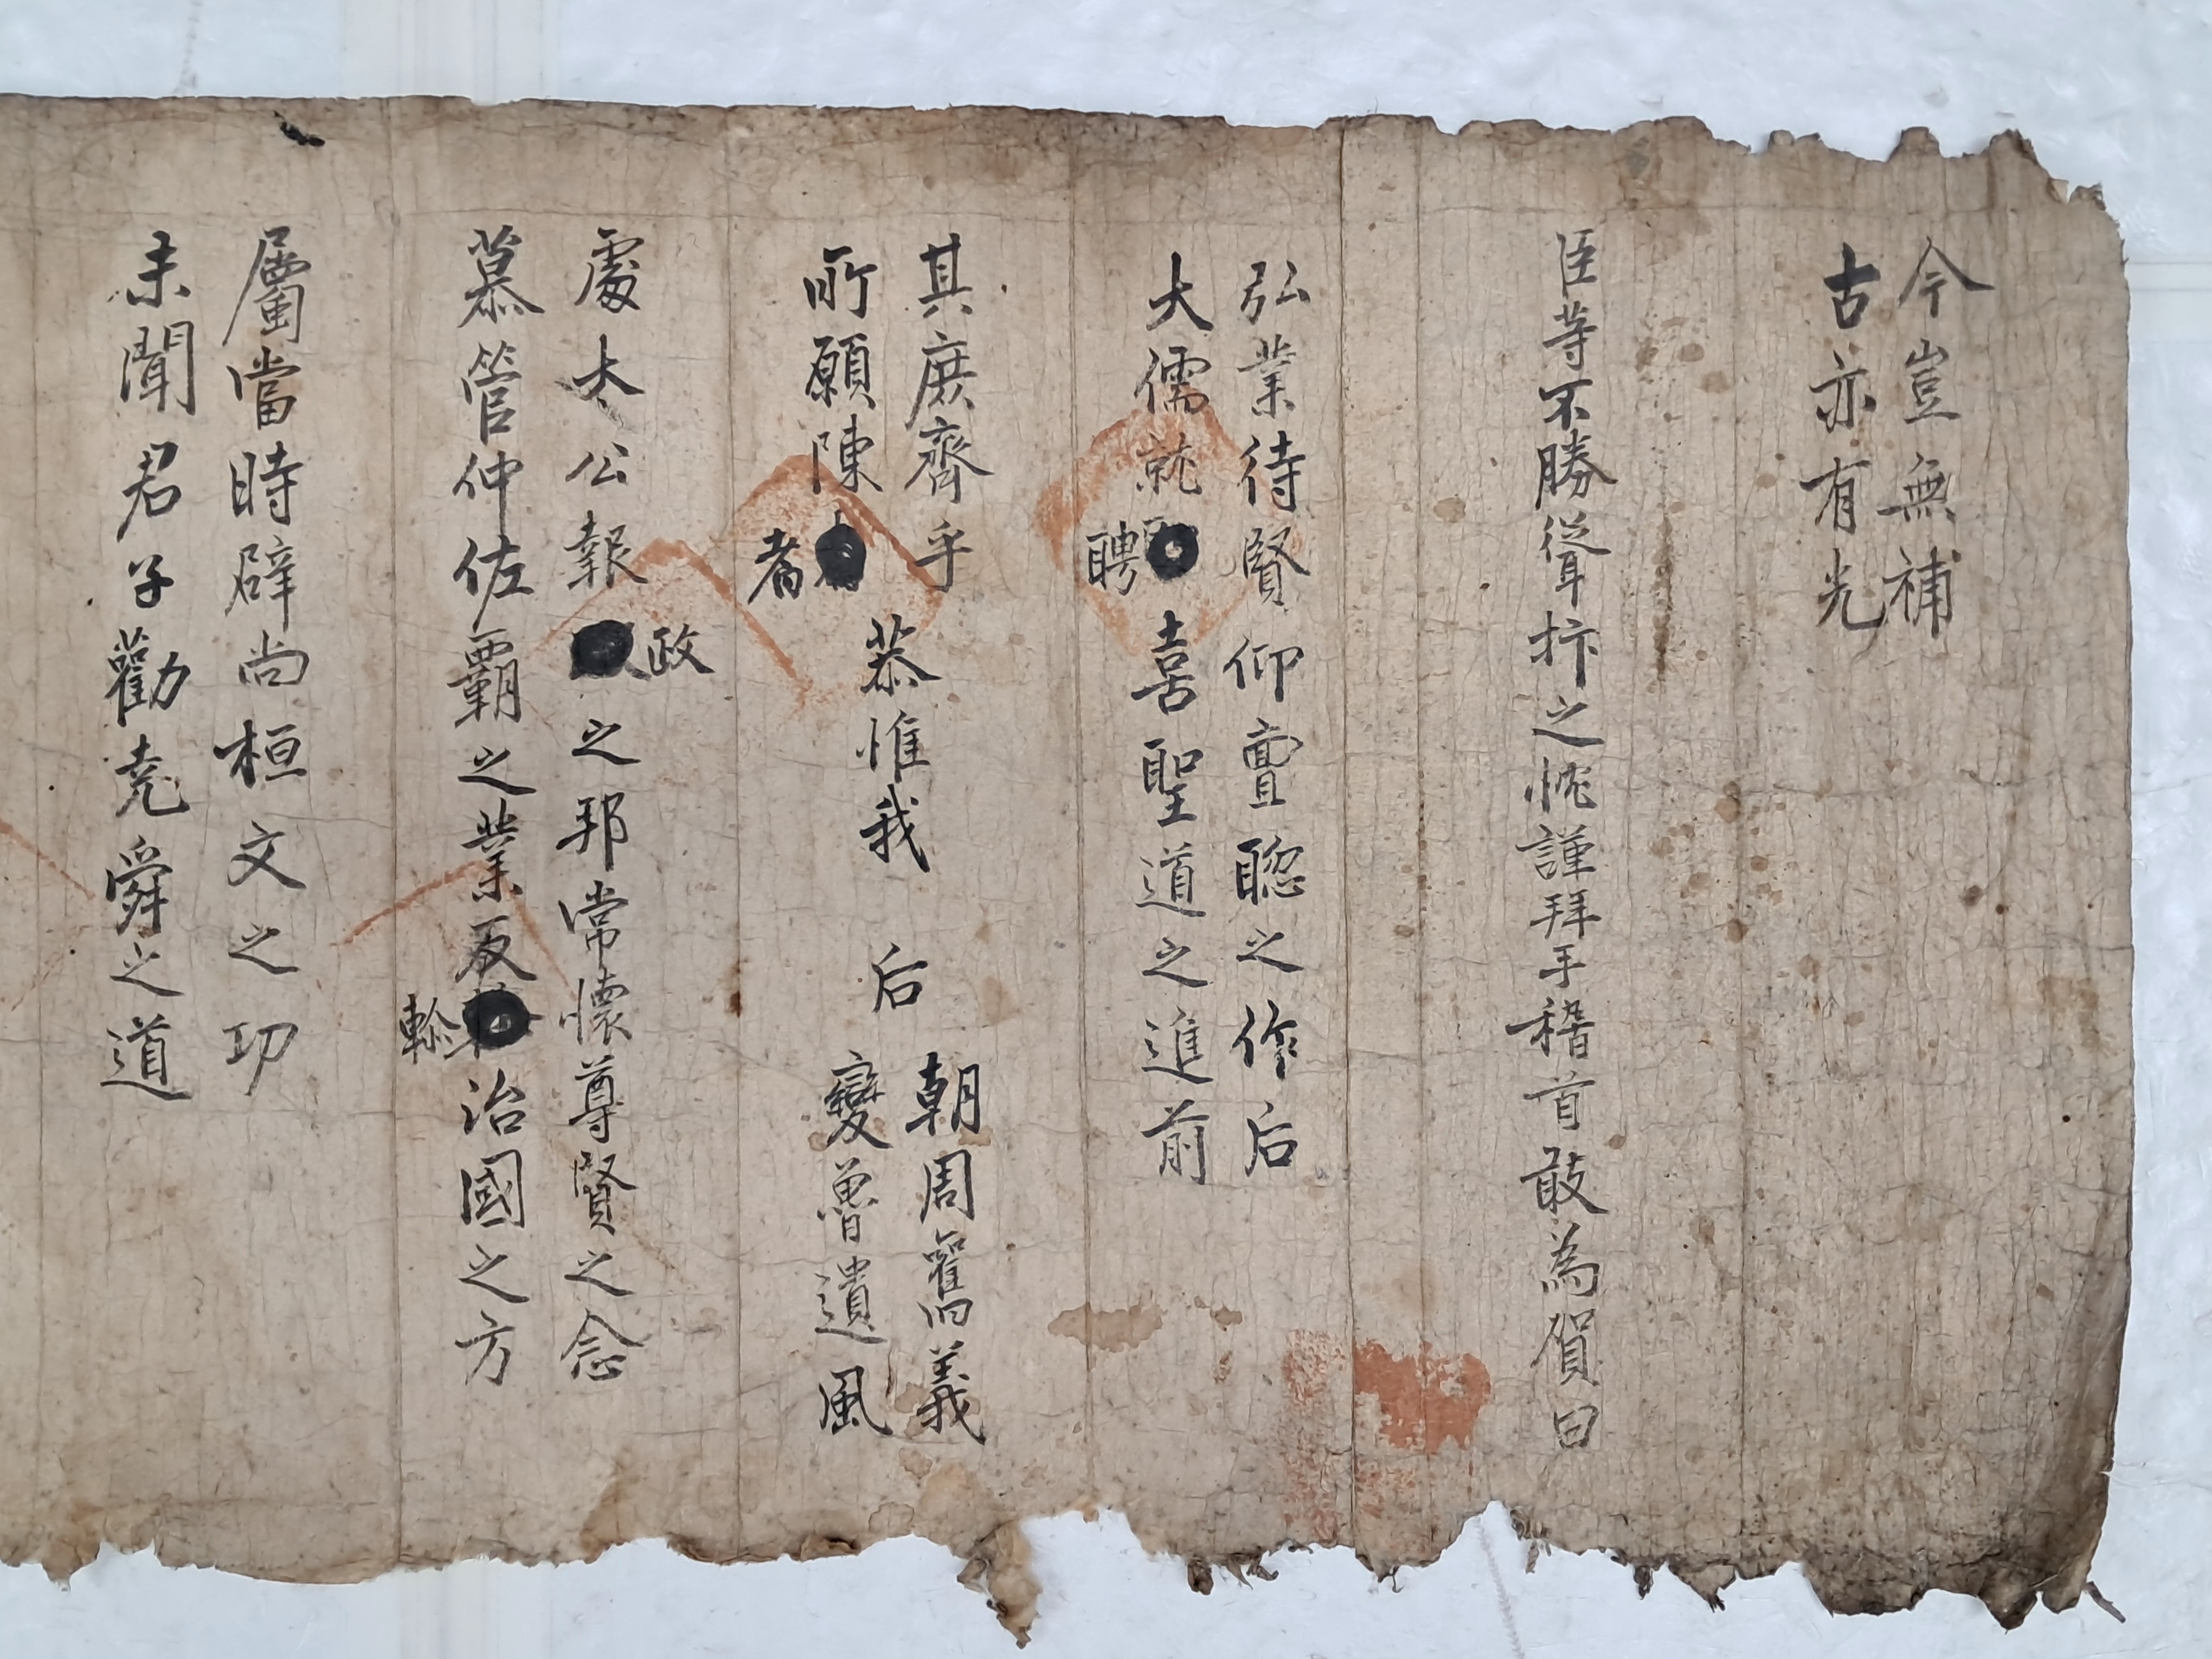 今豈無補
古亦有光
臣等不勝聳抃之忱謹拜手稽首敢為賀曰
弘業待賢仰亶聦之作后
大儒就聘喜聖道之進前
其庶齊乎
所願陳者
恭惟我
后
朝周舊義
變魯遺風
處太公報政之邦常懷尊賢之念
慕管仲佐覇之業友軫治國之方
屬當時辟尚桓文之功
未聞君子勸堯舜之道